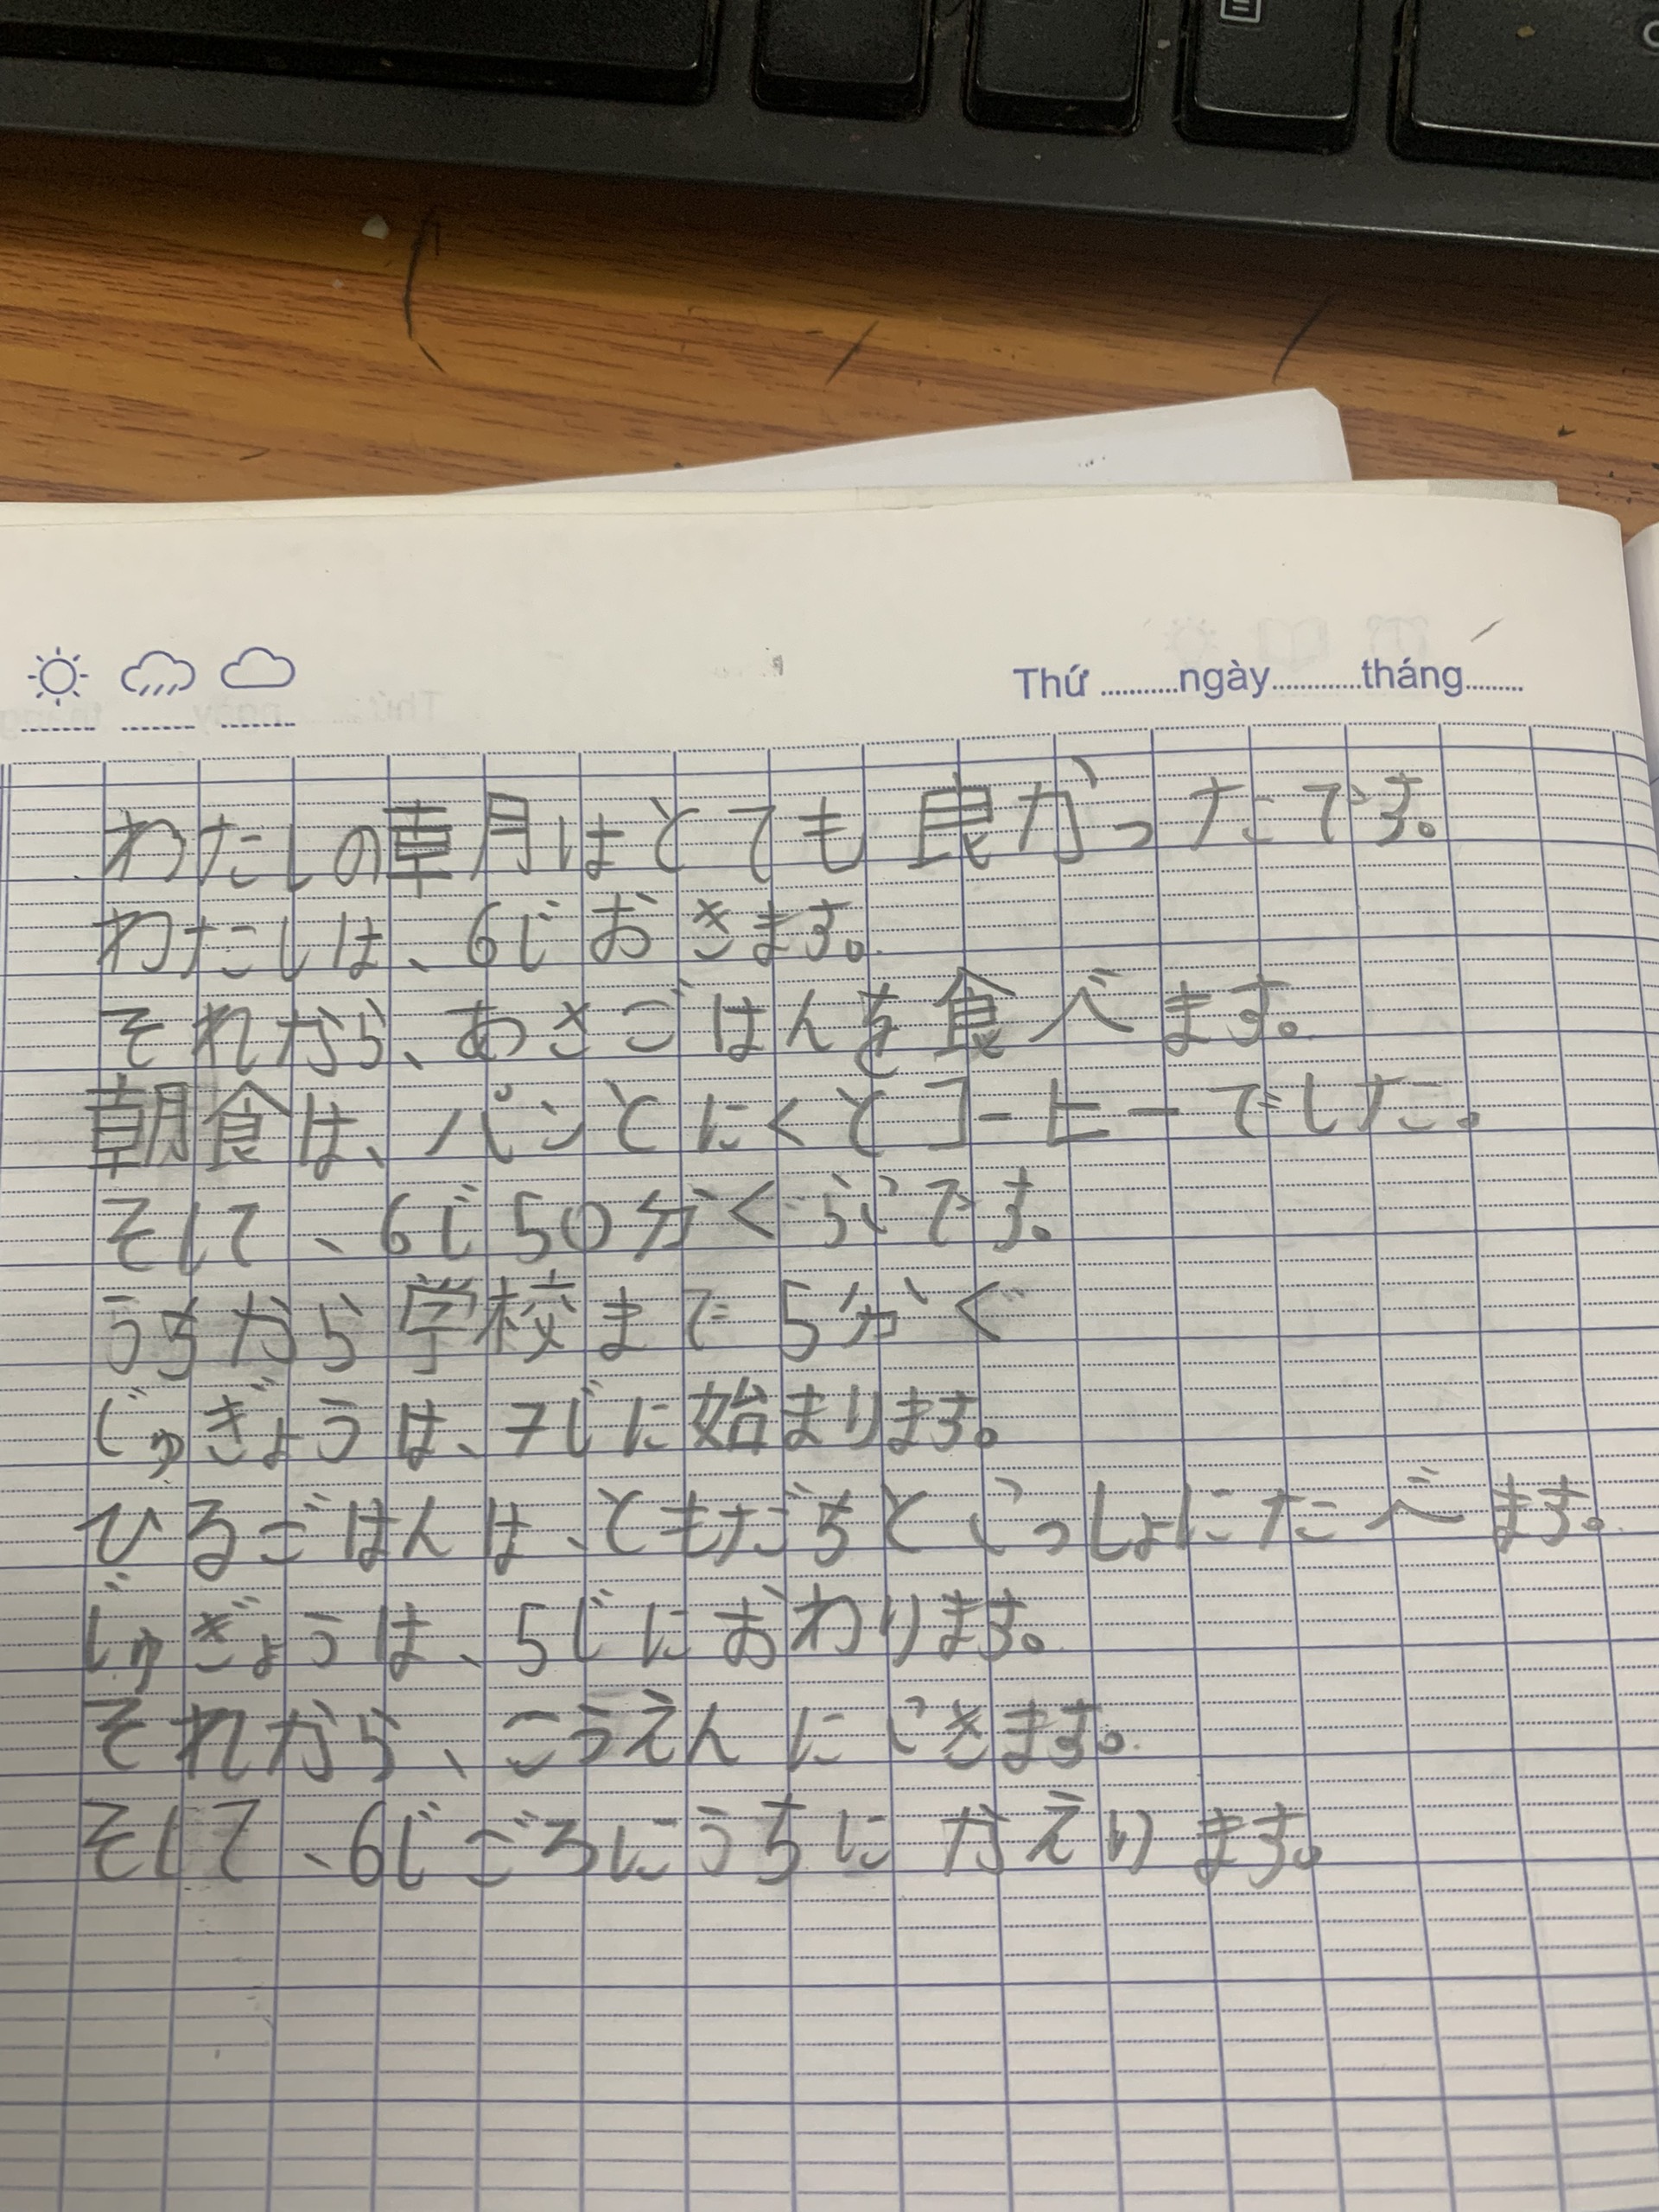 Thứ ...........ngày.............tháng.........
わたしの朝はとても良かったです。
わたしは、6じおきます。
それから、あさごはんを食べます。
朝食は、パンとにくとコーヒーでした。
そして、6じ50分くらいです。
うちから学校まで5分ぐ
じゅぎょうは、7じに始まります。
ひるごはんは、ともだちといっしょにたべます。
じゅぎょうは、5じにおわります。
それから、こうえんにいきます。
そして、6じごろにうちにかえります。